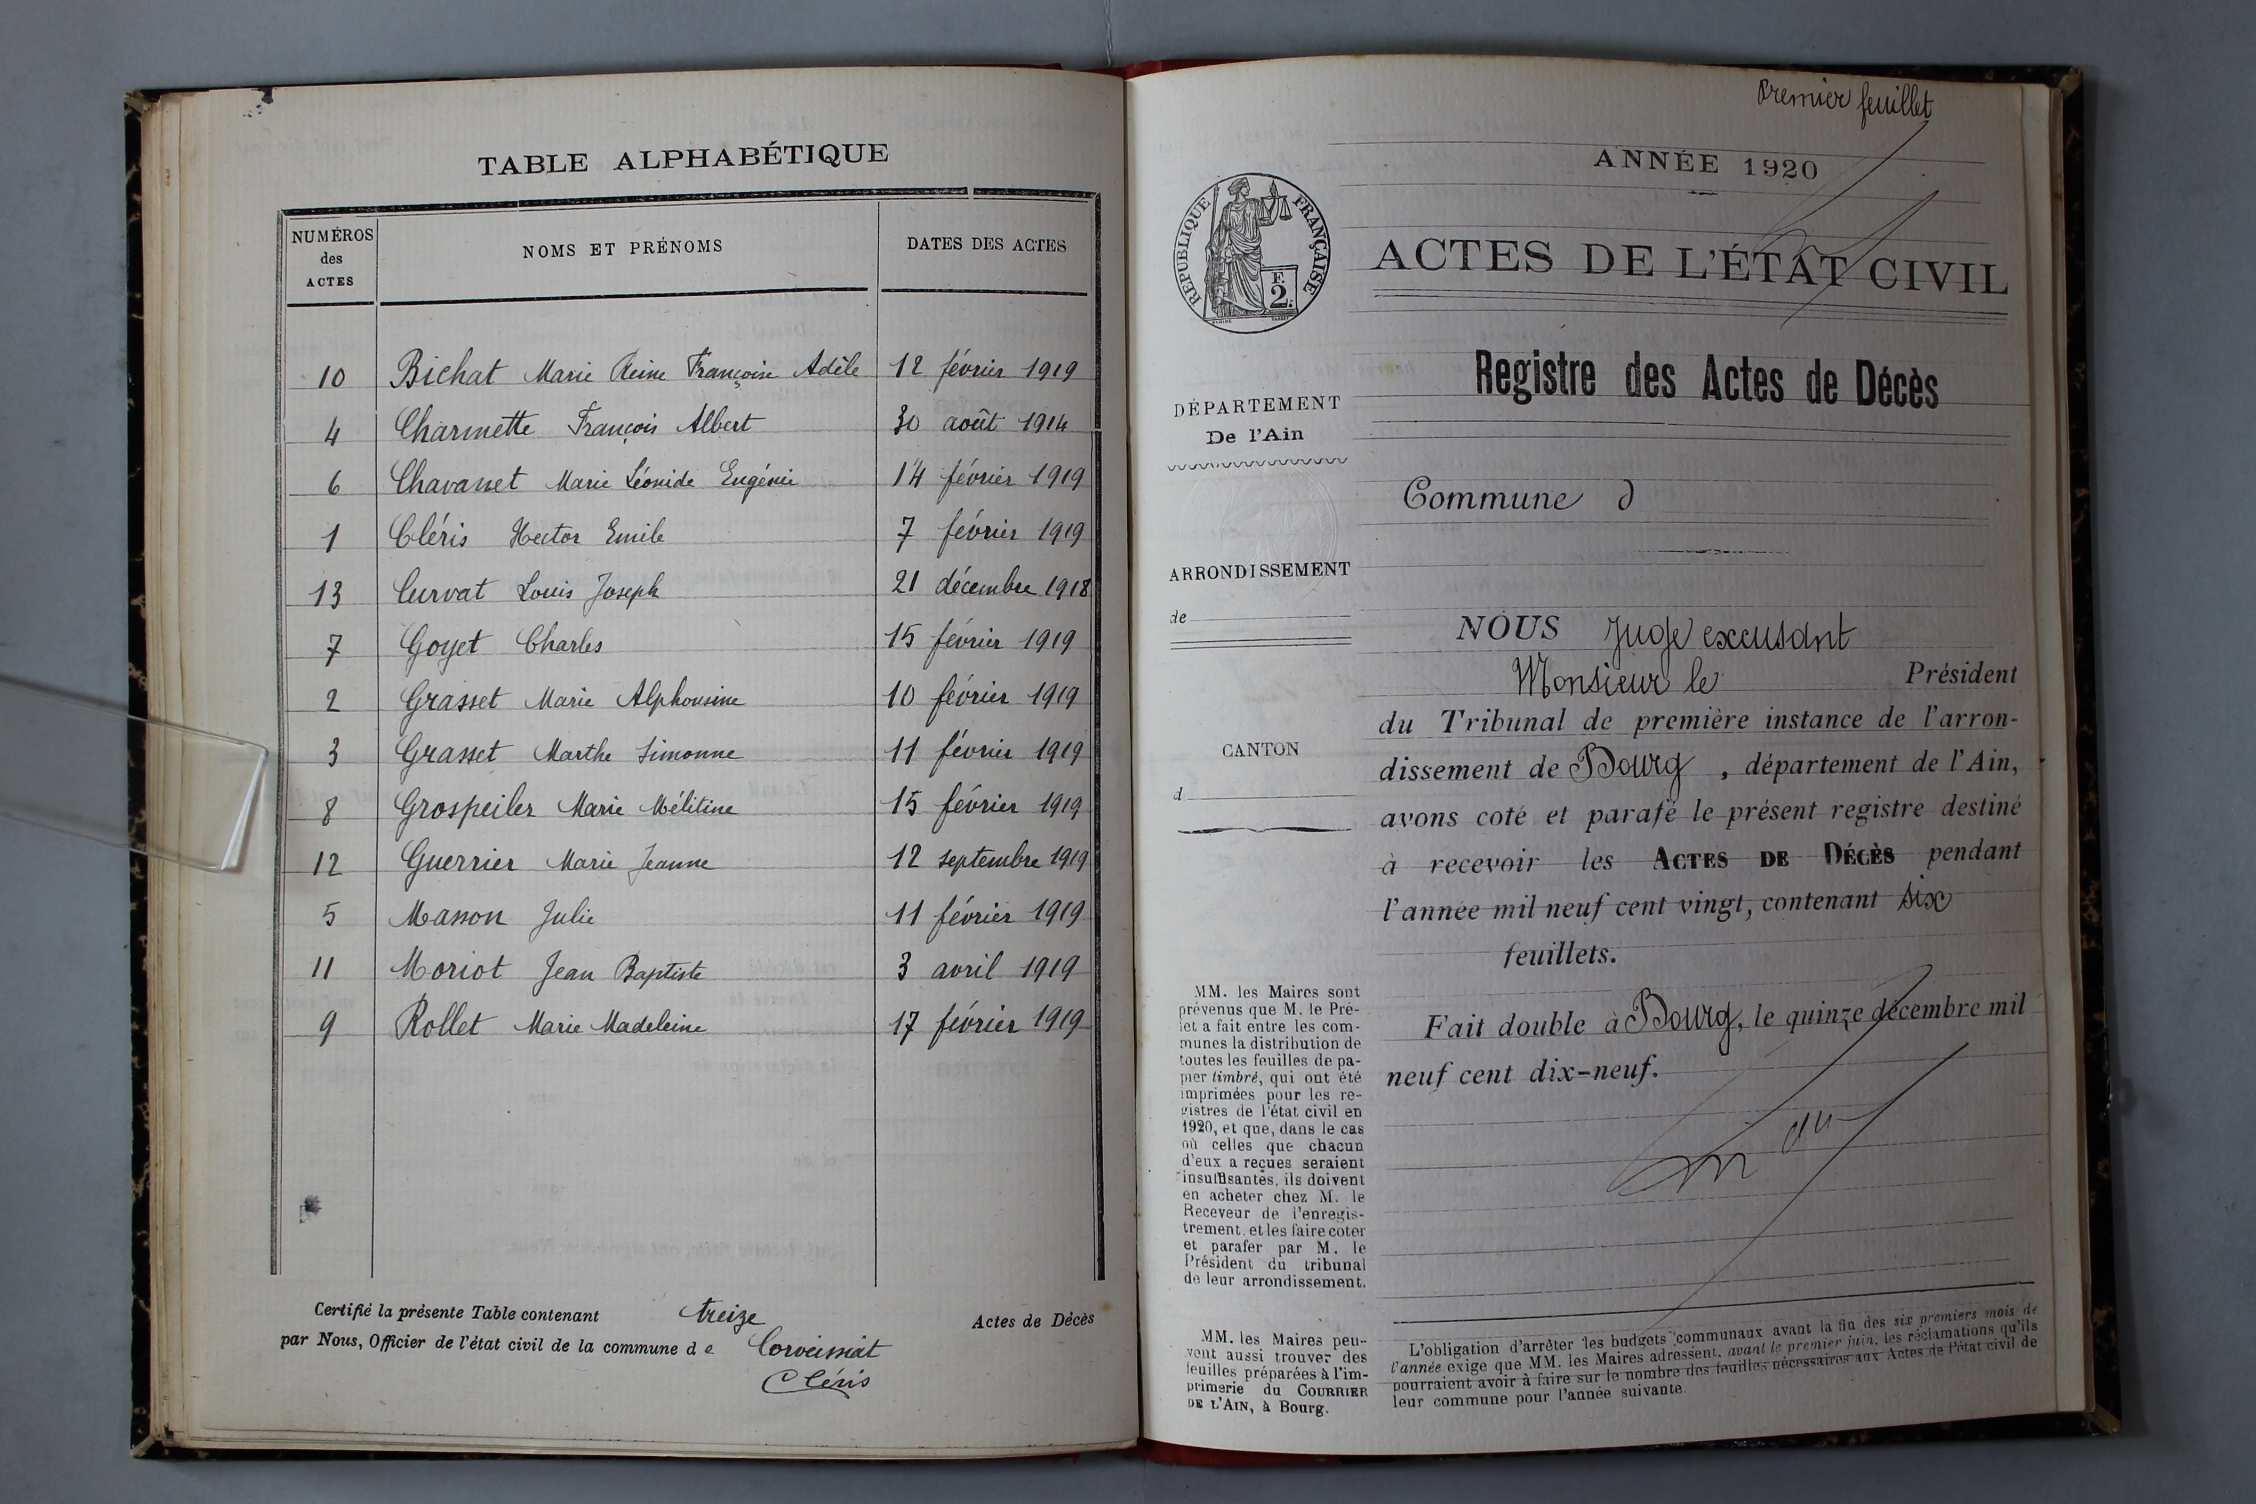 TABLE ALPHABÉTIQUE
NUMÉROS des ACTES | NOMS ET PRÉNOMS | DATES DES ACTES
10 Bichat Marie Reine Françoise Adèle 12 février 1919
4 Charmette François Albert 30 août 1914
6 Chavanet Marie Léonide Eugénie 14 février 1919
1 Cléris Hector Emile 7 février 1919
13 Curvat Louis Joseph 21 décembre 1918
7 Goyet Charles 15 février 1919
2 Grasset Marie Alphonsine 10 février 1919
3 Grasset Marthe Simonne 11 février 1919
8 Grospeiler Marie Mélitine 15 février 1919
12 Guerrier Marie Jeanne 12 septembre 1919
5 Masson Julie 11 février 1919
11 Moriot Jean Baptiste 3 avril 1919
9 Rollet Marie Madeleine 17 février 1919
Certifié la présente Table contenant treize Actes de Décès
par Nous, Officier de l'état civil de la commune de Corveissiat
Cléris
Premier feuillet
ANNÉE 1920
RÉPUBLIQUE FRANÇAISE
F. 2.
ACTES DE L'ÉTAT CIVIL
Registre des Actes de Décès
DÉPARTEMENT
De l'Ain
Commune d
ARRONDISSEMENT
de
CANTON
d
NOUS Juge excusant
Monsieur le Président
du Tribunal de première instance de l'arron-
dissement de Bourg, département de l'Ain,
avons coté et parafé le présent registre destiné
à recevoir les ACTES DE DÉCÈS pendant
l'année mil neuf cent vingt, contenant six
feuillets.
Fait double à Bourg, le quinze décembre mil
neuf cent dix-neuf.
MM. les Maires sont
prévenus que M. le Pré-
fet a fait entre les com-
munes la distribution de
toutes les feuilles de pa-
pier timbré, qui ont été
imprimées pour les re-
gistres de l'état civil en
1920, et que, dans le cas
où celles que chacun
d'eux a reçues seraient
insuffisantes, ils doivent
en acheter chez M. le
Receveur de l'enregis-
trement, et les faire coter
et parafer par M. le
Président du tribunal
de leur arrondissement.
MM. les Maires peu-
vent aussi trouver des
feuilles préparées à l'im-
primerie du COURRIER
DE L'AIN, à Bourg.
L'obligation d'arrêter les budgets communaux avant la fin des six premiers mois de
l'année exige que MM. les Maires adressent, avant le premier juin, les réclamations qu'ils
pourraient avoir à faire sur le nombre des feuilles nécessaires aux Actes de l'état civil de
leur commune pour l'année suivante.